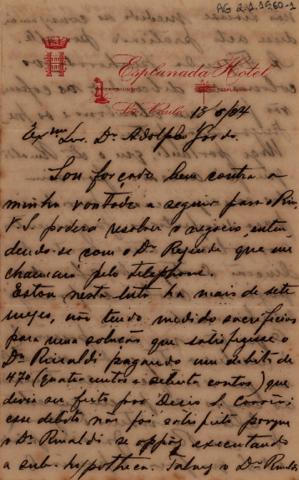 AG 2.2.1960-1
Esplanada Hotel
São Paulo 18/8/24
Exmo Snr. Dr. Adolpho Gordo.
Sou forçado bem contra a
minha vontade a seguir para o Rio,
V. S. poderá resolver o negocio, enten
dendo-se com o Dr. Rezende que me
chamará pelo telephone.
Estou nesta luta ha mais de sete
mezes, não tendo medido sacrificios
para uma solução que satisfizesse o
Dr. Rinaldi pagando um debito de
470 (quatrocentos e setenta contos) que
devia ser feito por
esse debito não foi satisfeito porque
o Dr. Rinaldi se oppoz executando
a sub-hypotheca. Talvez o Dr. Rinaldi